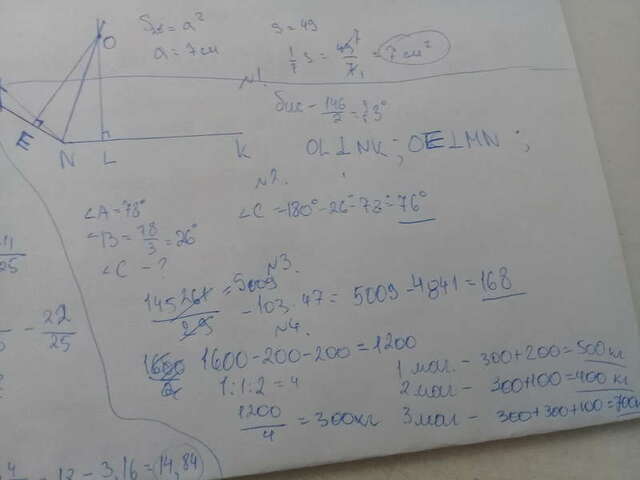 Sк = a²
a = 7 см
S = 49
1/7 S = 49/7 = 7 см²
O
№1.
бис - 146/2 = 73°
E
N L K
OL⊥NK; OE⊥MN ;
№2.
∠A = 78°
∠B = 78/3 = 26°
∠C - ?
∠C = 180° - 26° - 78° = 76°
№3.
145261/29 = 5009
- 103 · 47 = 5009 - 4841 = 168
25
- 22/25
№4.
1600 - 200 - 200 = 1200
1:1:2 = 4
1200/4 = 300 кг
1 маг. - 300 + 200 = 500 кг
2 маг - 300 + 100 = 400 кг
3 маг - 300 + 300 + 100 = 700
- 3,16 = 14,84